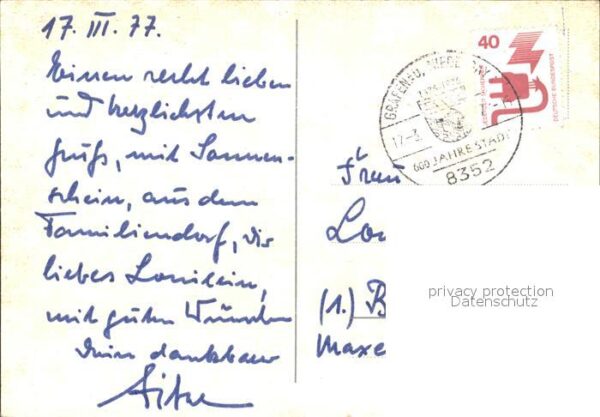 17. III. 77.
Einen recht lieben
und herzlichsten
Gruß, mit Sonnen-
schein, aus dem
Familiendorf, Dir
liebes Louilein,
mit guten Wünschen
Dein dankbarer
40
DEUTSCHE BUNDESPOST
GRAFENAU, NIEDERBAY
17-3
600 JAHRE STADT
8352
Frau
Lou
(1.) B
Maxe
privacy protection
Datenschutz